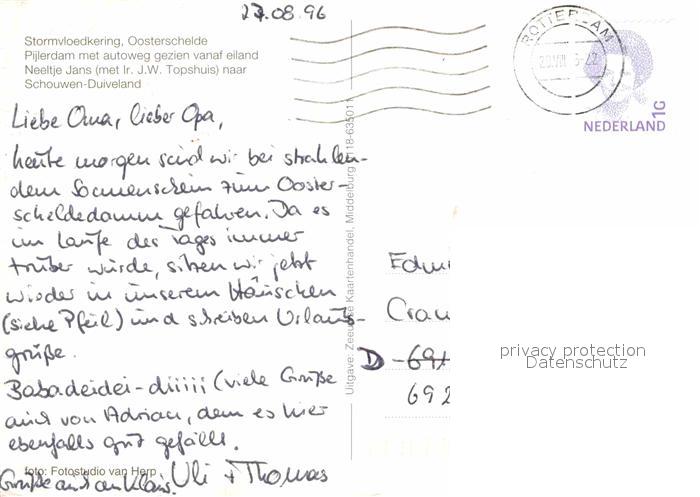 27.08.96
Stormvloedkering, Oosterschelde
Pijlerdam met autoweg gezien vanaf eiland
Neeltje Jans (met Ir. J.W. Topshuis) naar
Schouwen-Duiveland
Liebe Oma, lieber Opa,
heute morgen sind wir bei strahlen-
dem Sonnenschein zum Ooster-
scheldedamm gefahren. Da es
im Laufe des Tages immer
trüber würde, sitzen wir jetzt
wieder in unserem Häuschen
(siehe Pfeil) und schreiben Urlaubs-
grüße.
Babadeidei-diiiii (viele Grüße
auch von Adrian, dem es hier
ebenfalls gut gefällt.
Grüße auch an Klaus. Uli + Thomas
foto: Fotostudio van Herp
Uitgave: Zeeuwse Kaartenhandel, Middelburg 118-635011
ROTTERDAM
NEDERLAND
1G
Edmu
Crau
D-691
692
privacy protection
Datenschutz